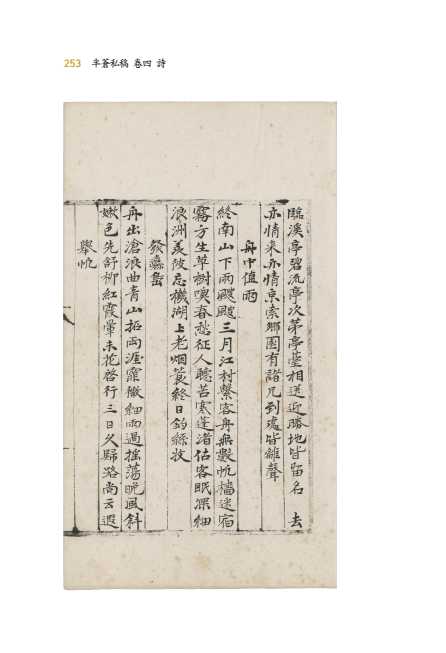 253 半蒼私稿 卷四 詩
臨溪亭碧流亭次第亭臺相送近勝地皆留名 去
亦情來亦情東家鄕園有諸凡到處皆離聲
舟中値雨
終南山下雨颼颼三月江村繫客舟無數帆檣迷宿
霧方生草樹嘆春愁征人聽苦寒蓬渚估客眠深細
浪洲羡彼忘機湖上老烟蓑終日釣絲投
發 曲
舟出滄浪曲青山拓兩涯霏微細雨過搖蕩晩風斜
嫩色先舒柳紅霞暈未花啓行三日久歸路尚云遐
擧帆